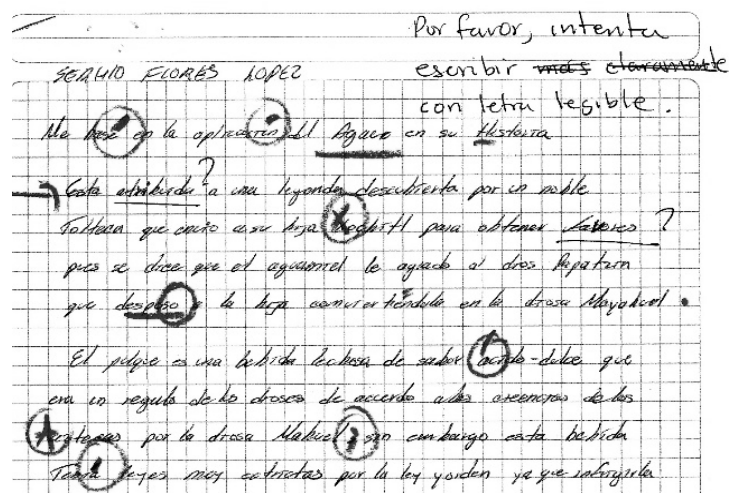 Por favor, intenta
escribir más claramente
con letra legible.
SERGIO FLORES LOPEZ
Me basé en la aplicación del Agave en su Historia
Esta atribuida a una leyenda descubierta por un noble
Tolteca que envio a su hija Xochitl para obtener favores ?
pues se dice que el aguamiel le agrado al dios
que desposo a la hija convirtiéndola en la diosa Mayahuel.
El pulque es una bebida lechosa de sabor ácido-dulce que
era un regalo de los dioses de acuerdo a las creencias de los
Aztecas por la diosa ; sin embargo esta bebida
Tenía leyes muy estrictas por la ley y orden ya que infringirla